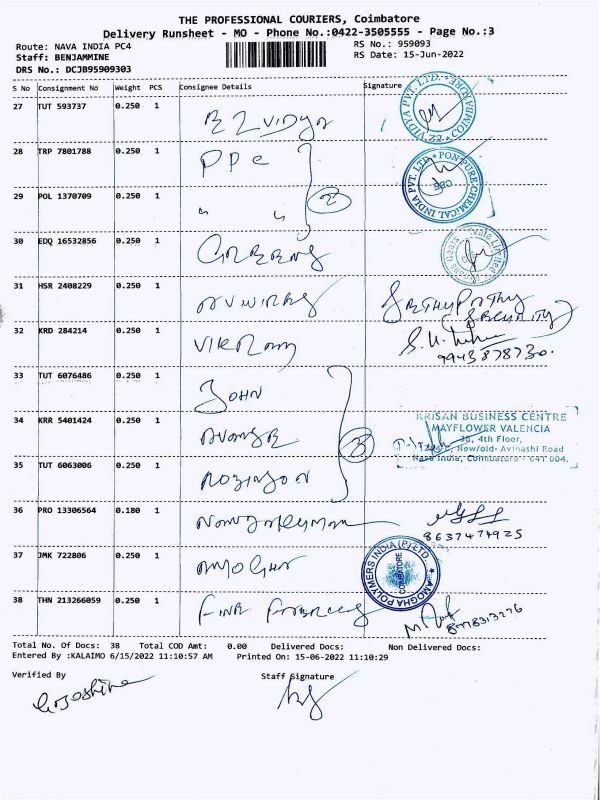 THE PROFESSIONAL COURIERS, Coimbatore
Delivery Runsheet - MO - Phone No.:0422-3505555 - Page No.:3
Route: NAVA INDIA PC4 RS No.: 959093
Staff: BENJAMMINE RS Date: 15-Jun-2022
DRS No.: DCJB95909303
S No Consignment No Weight PCS Consignee Details Signature
27 TUT 593737 0.250 1 EZ VIDYA
28 TRP 7801788 0.250 1 PPC
29 POL 1370709 0.250 1 " " 2
PON PURE CHEMICAL INDIA PVT. LTD.
CBE
30 EDQ 16532856 0.250 1
31 HSR 2408229 0.250 1
32 KRD 284214 0.250 1 VIKRAM
9943878730.
33 TUT 6076486 0.250 1 JOHN
34 KRR 5401424 0.250 1 3
KRISAN BUSINESS CENTRE
MAYFLOWER VALENCIA
4th Floor,
New/old- Avinashi Road
Nava India, Coimbatore - 641 004.
35 TUT 6063006 0.250 1 ROBINSON
36 PRO 13306564 0.180 1
8637474925
37 JMK 722806 0.250 1 AMOGHA
AMOGHA POLYMERS INDIA (P) LTD.
COIMBATORE
38 THN 213266059 0.250 1
Total No. Of Docs: 38 Total COD Amt: 0.00 Delivered Docs: Non Delivered Docs:
Entered By :KALAIMO 6/15/2022 11:10:57 AM Printed On: 15-06-2022 11:10:29
Verified By Staff Signature